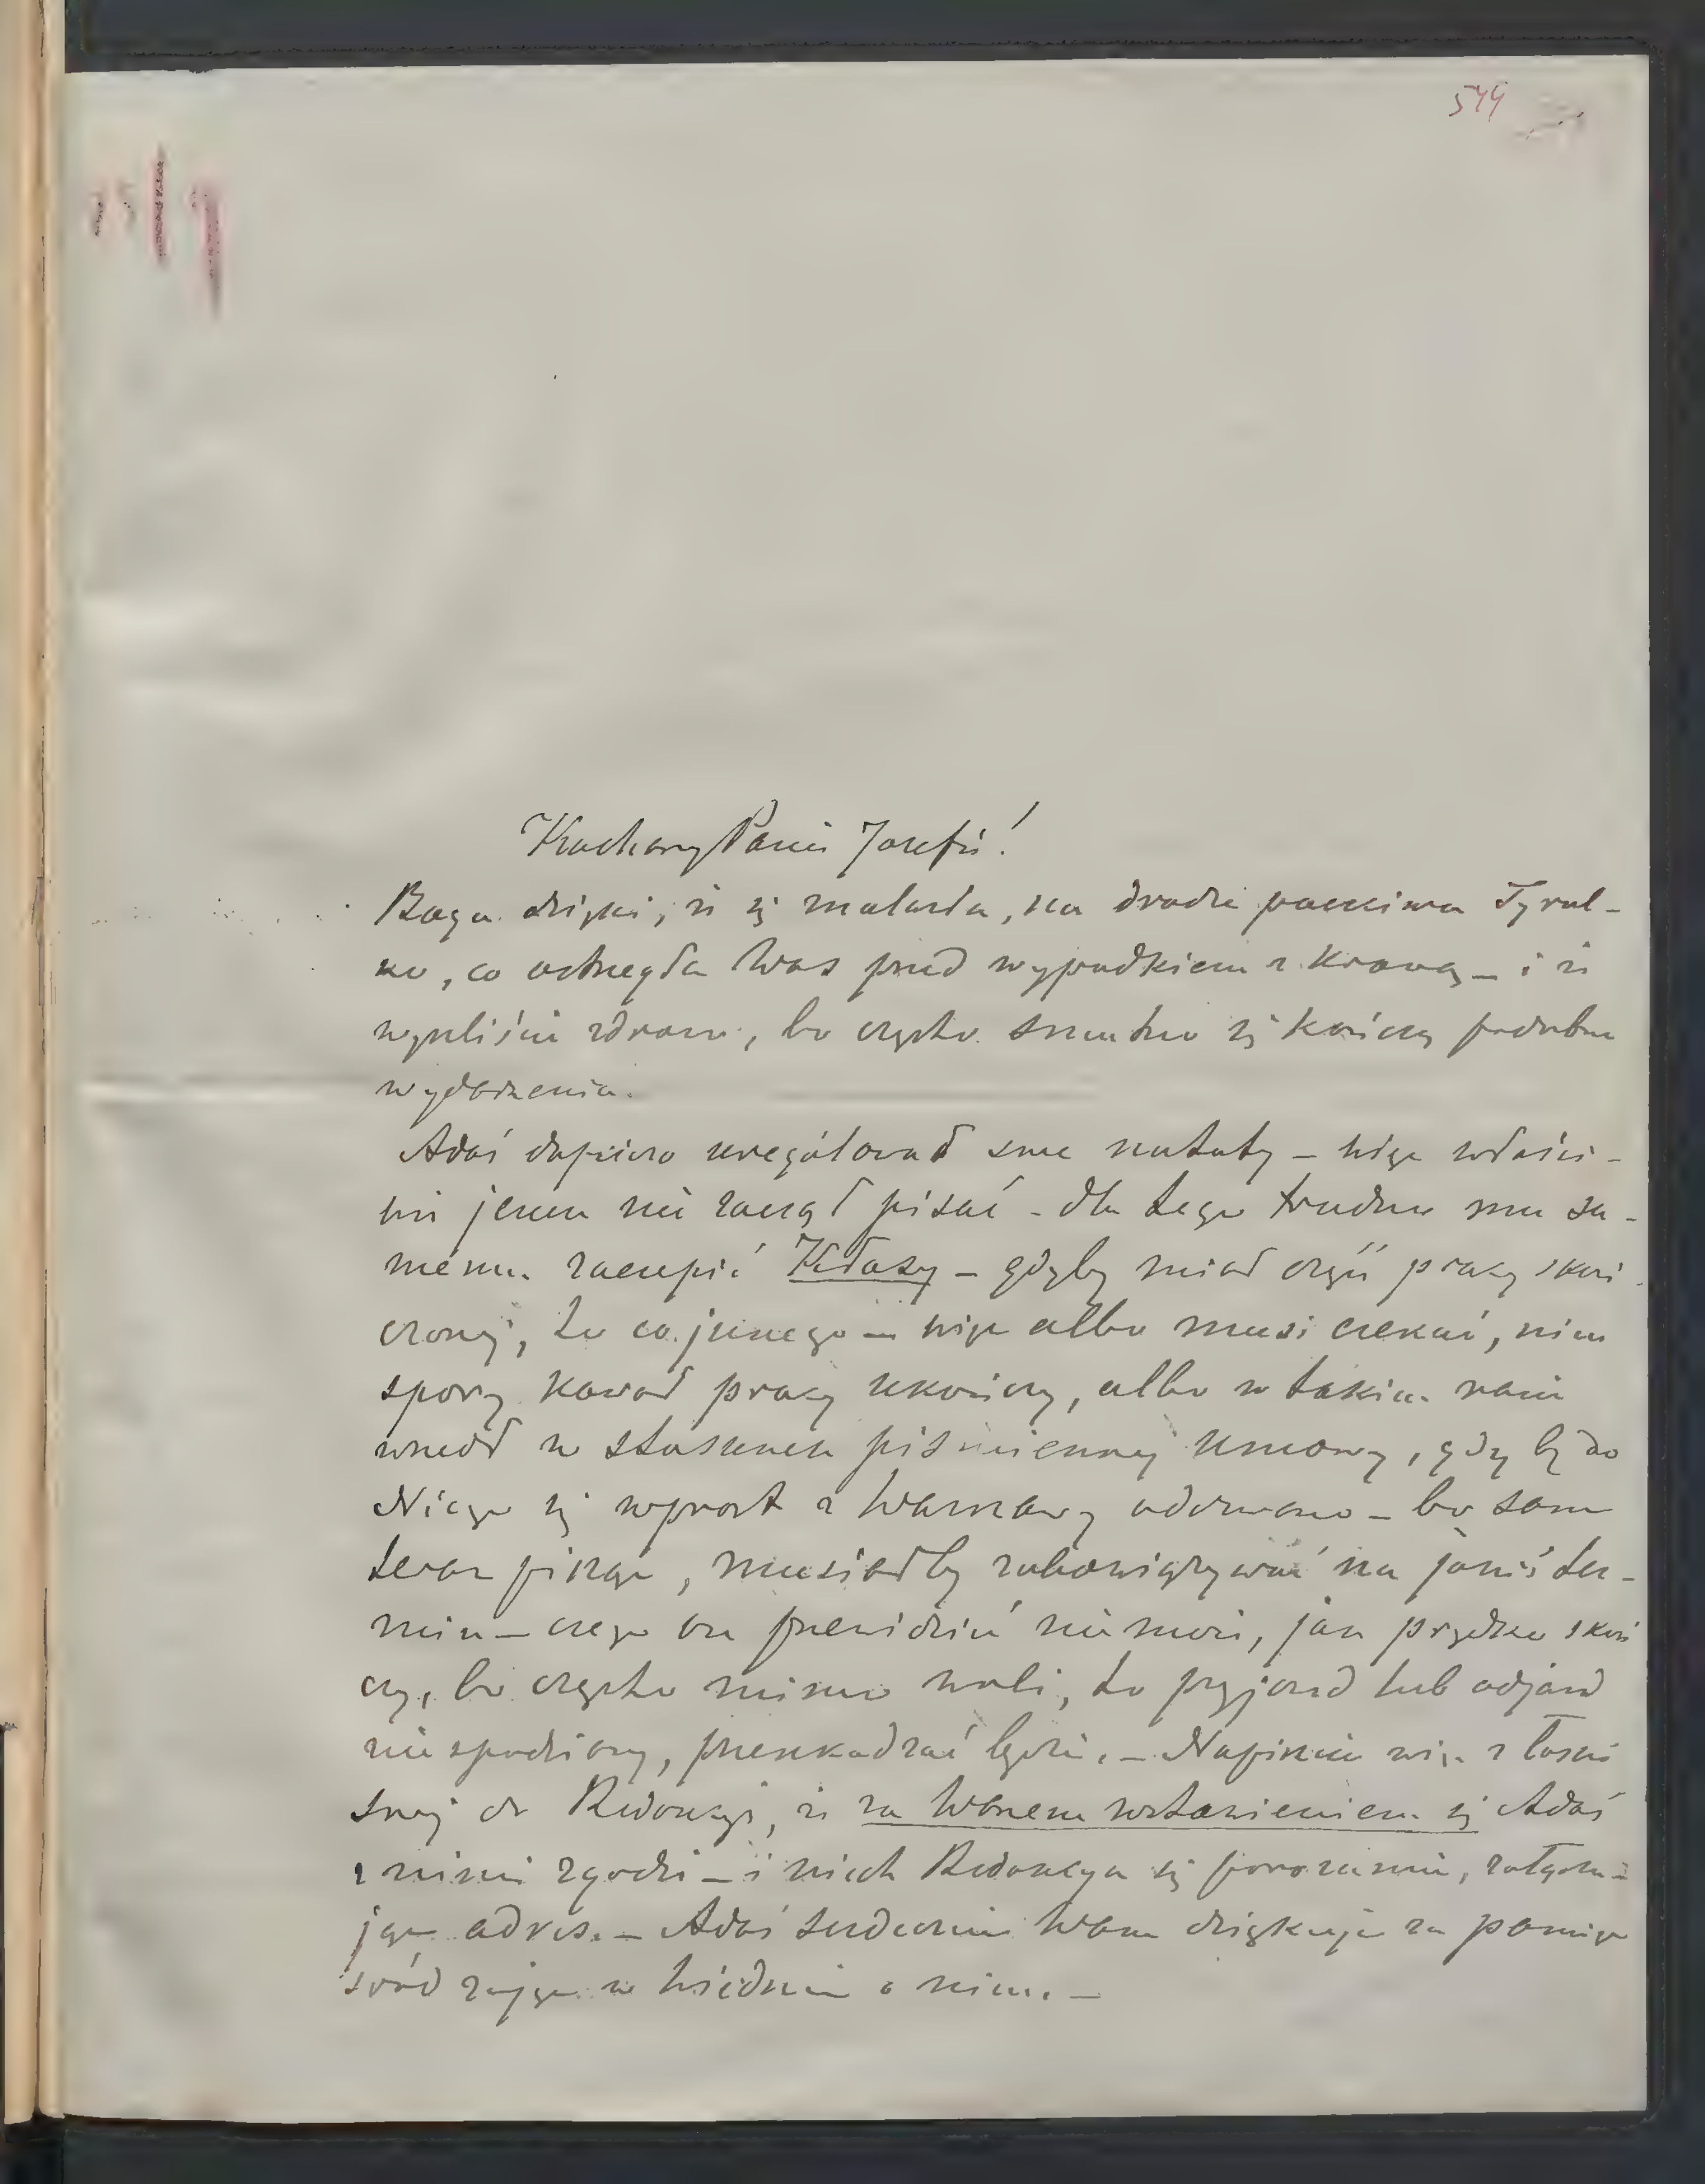 544
Kochany Panie Józefie!
Bogu dzięki, że się znalazła, na drodze poczciwa Tyrol-
ka, co ostrzegła Was przed wypadkiem z Krową – i że
wyszliście zdrowo, bo często smutno się kończą podobne
wydarzenia.
Adaś dopiero uregulował swe notaty – więc właści-
wie jeszcze nie zaczął pisać – dla tego trudno mu sa-
memu zaczepić Kłosy – gdyby miał część pracy skoń
czonej, to co innego – więc albo musi czekać, nim
spory kawał pracy ukończy, albo w takim razie
wszedł w stosunek piśmiennej umowy, gdy by do
Niego się wprost z Warszawy odezwano – bo sam
teraz pisząc, musiałby zobowiązywać na jakiś ter-
min – czego on przewidzieć nie może, jak prędko skoń
czy, bo często mimo woli, to przyjazd lub odjazd
niespodziany, przeszkadzać będzie. – Napiszcie więc z łaski
swej do Redakcyi, że za Waszem wstawieniem się Adaś
z nimi zgodzi – i niech Redakcya się porozumie, załącza-
jąc adres. – Adaś serdecznie Wam dziękuje za pamięć
w Wiedniu o nim. –